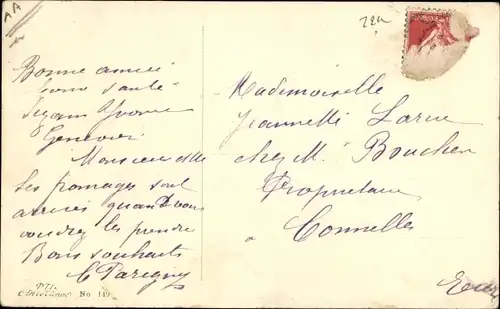 Bonne année
bonne santé
Suzann Yvonne
Genevier
Monsieur
Les fromages sont
arrivés quand vous
voudrez les prendre
Bons souhaits
C Parigny
No 119
22
Mademoiselle
Jeannette Larue
chez M. Boucher
Propriétaire
à Connelles
Eure